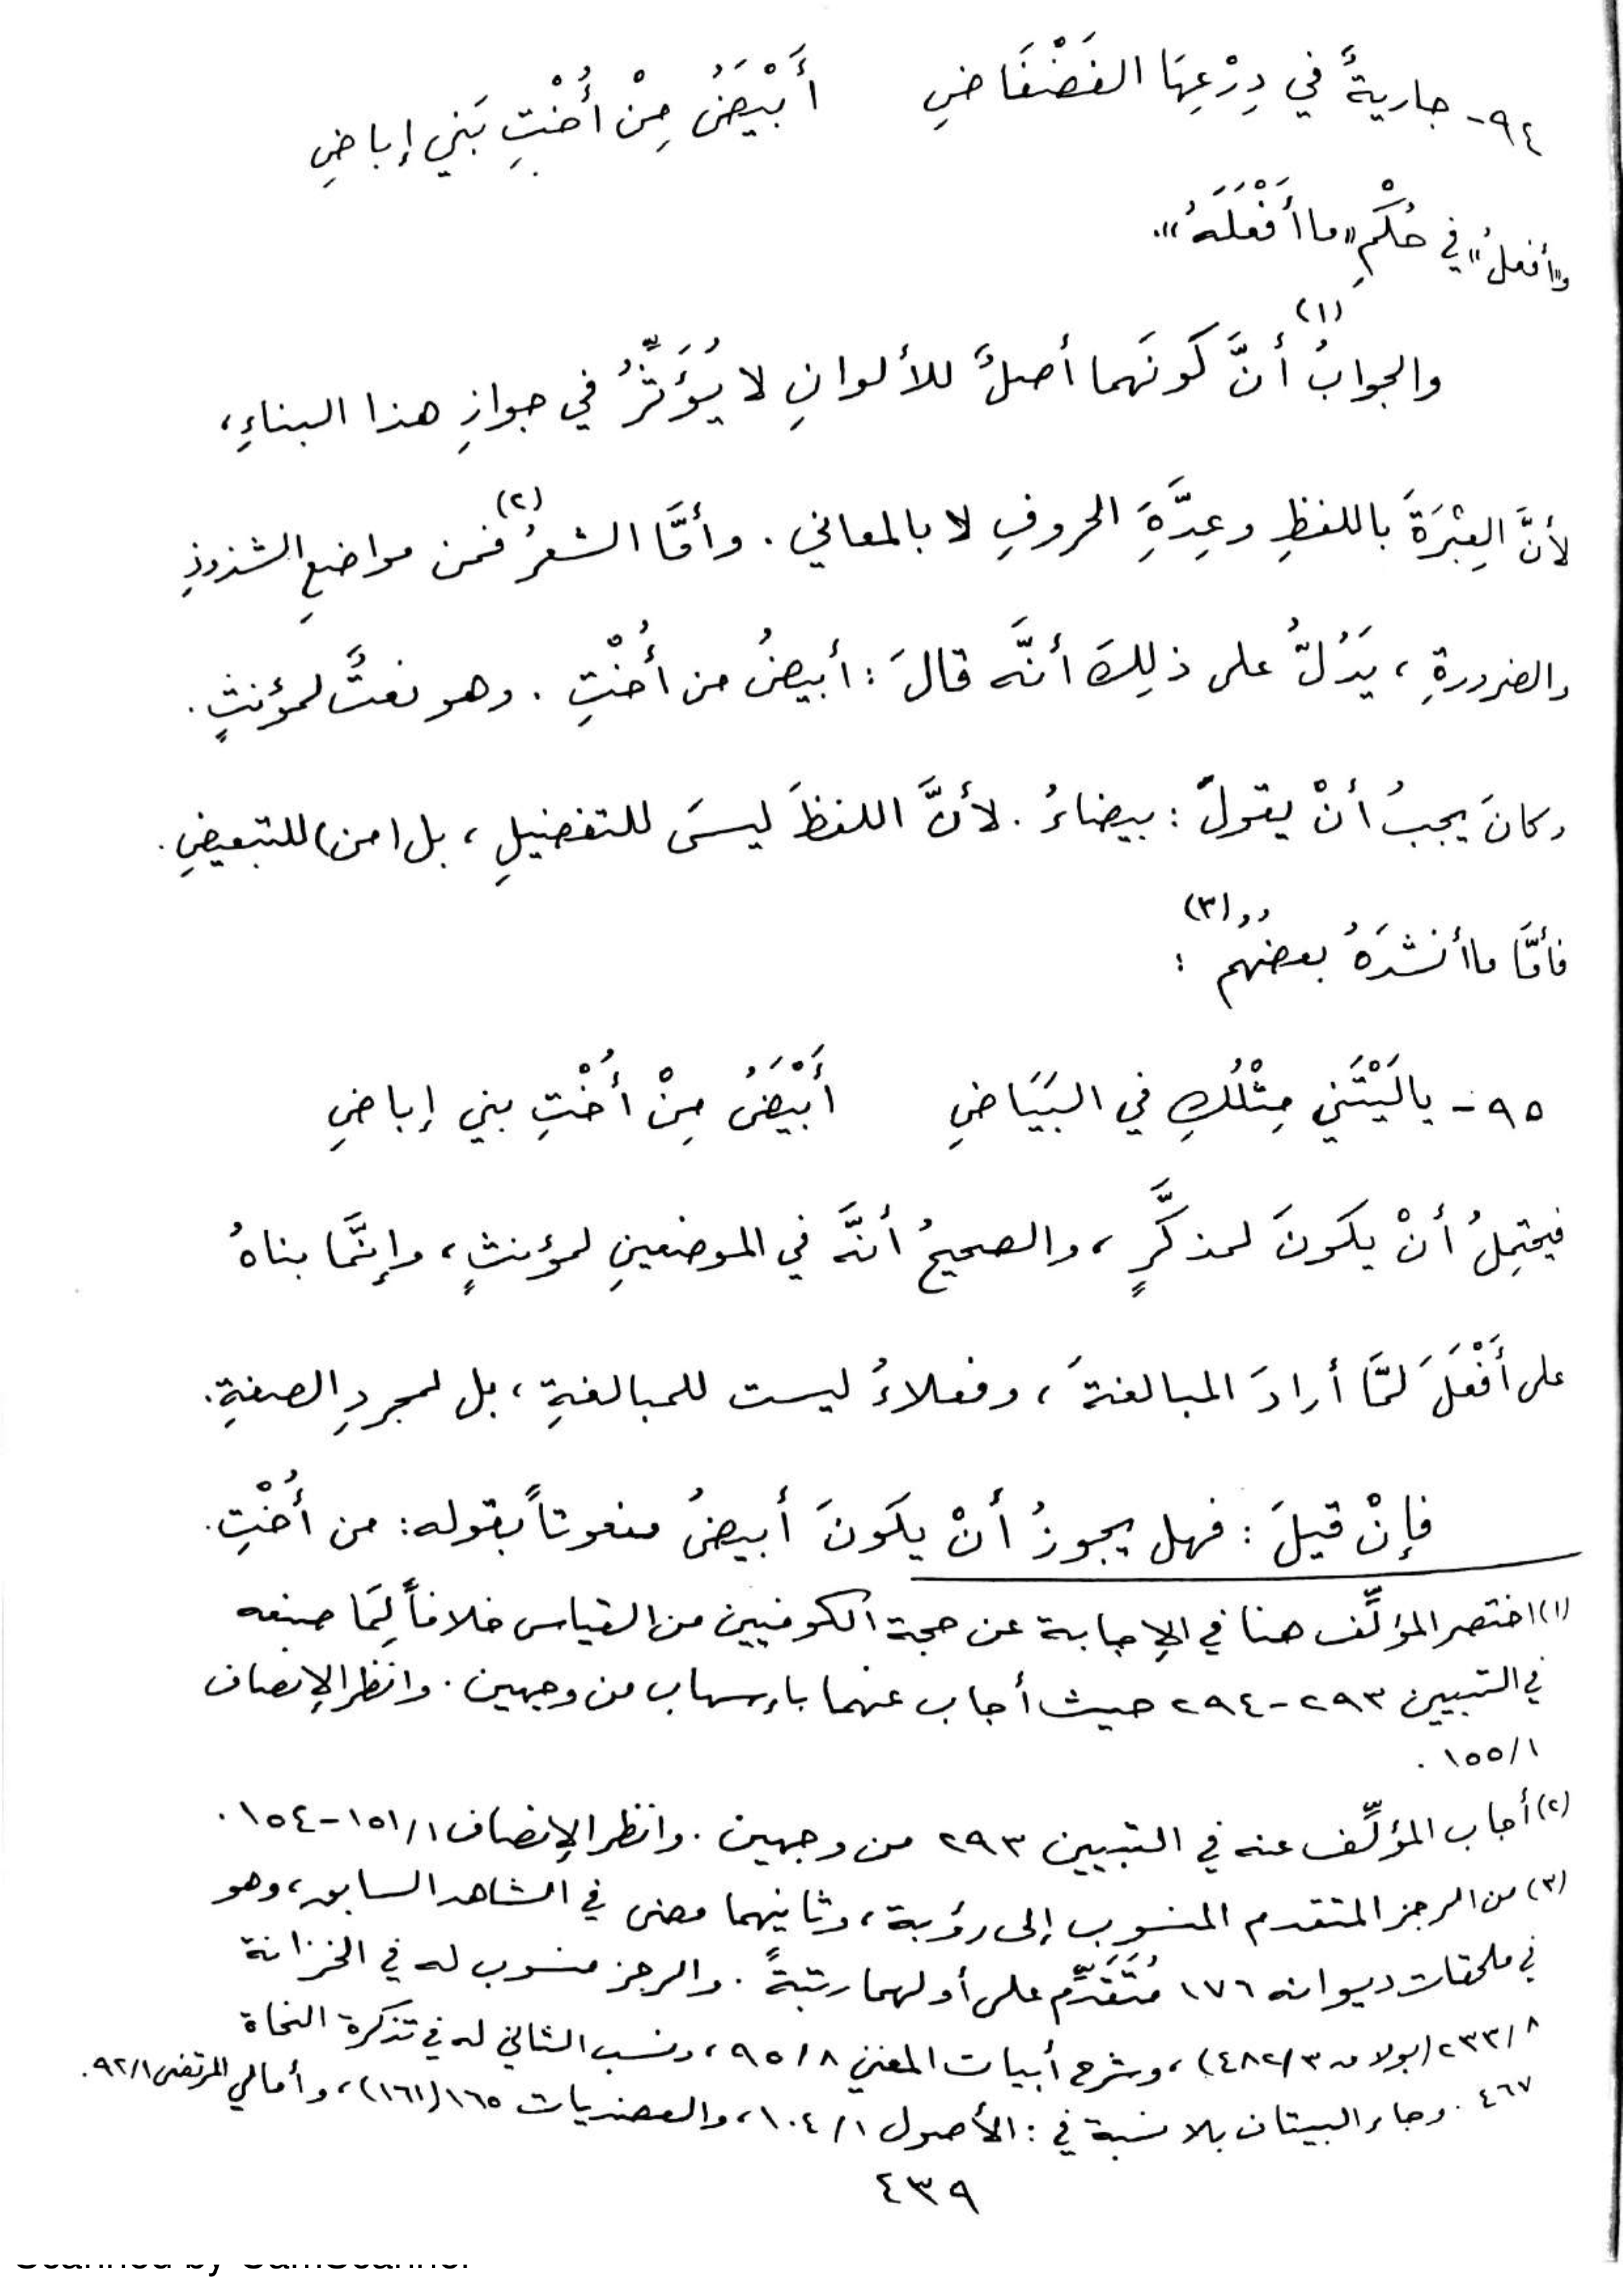 ٩٤- جاريةٌ في دِرْعِهَا الفَضْفَاضِ أَبْيَضُ مِنْ أُخْتِ بَني إباضِ
و«أفعلُ» في حُكْمِ «ما أَفْعَلَهُ».
والجوابُ (١) أنَّ كَونَهما أصلٌ للألوانِ لا يُؤَثِّرُ في جوازِ هذا البناءِ،
لأنَّ العِبْرَةَ باللفظِ وعِدَّةِ الحروفِ لا بالمعاني. وأمَّا الشعرُ (٢) فمن مواضعِ الشذوذِ
والضرورةِ، يَدُلُّ على ذلِكَ أنَّه قالَ: أبيضُ من أُخْتِ. وهو نعتٌ لمؤنثٍ.
وكانَ يجبُ أنْ يقولَ: بيضاءُ. لأنَّ اللفظَ ليسَ للتفضيلِ، بل (من) للتبعيضِ.
فأمَّا ما أنشدَهُ بعضُهُم (٣):
٩٥- يا لَيْتَني مِثْلُكِ في البَيَاضِ أَبْيَضُ مِنْ أُخْتِ بني إباضِ
فيحتمِلُ أنْ يكونَ لمذكَّرٍ، والصحيحُ أنَّه في الموضعينِ لمؤنثٍ، وإنَّما بناهُ
على أَفْعَلَ لمَّا أرادَ المبالغةَ، وفعلاءُ ليست للمبالغةِ، بل لمجردِ الصفةِ.
فإنْ قيلَ: فهل يجوزُ أنْ يكونَ أبيضُ منعوتاً بقوله: من أُخْتِ.
(١) اختصر المؤلِّف هنا في الإجابة عن حجة الكوفيين من القياس خلافاً لِمَا صنعه
في التبيين ٢٩٣-٢٩٤ حيث أجاب عنهما بإسهاب من وجهين. وانظر الإنصاف
١/١٥٥.
(٢) أجاب المؤلِّف عنه في التبيين ٢٩٣ من وجهين. وانظر الإنصاف ١/١٥١-١٥٤.
(٣) من الرجز المتقدم المنسوب إلى رؤبة، وثانيهما مضى في الشاهد السابق، وهو
في ملحقات ديوانه ١٧٦ مُتَقَدِّم على أولهما رتبةً. والرجز منسوب له في الخزانة
٨/٢٣٣ (بولاق ٣/٤٨٢)، وشرح أبيات المغني ٨/٩٥، ونسب الثاني له في تذكرة النحاة
٤٦٧. وجاء البيتان بلا نسبة في: الأصول ١/١٠٤، والعضديات ١٦٥ (١٦١)، وأمالي المرتضى ١/٩٢.
٤٣٩
Scanned by CamScanner